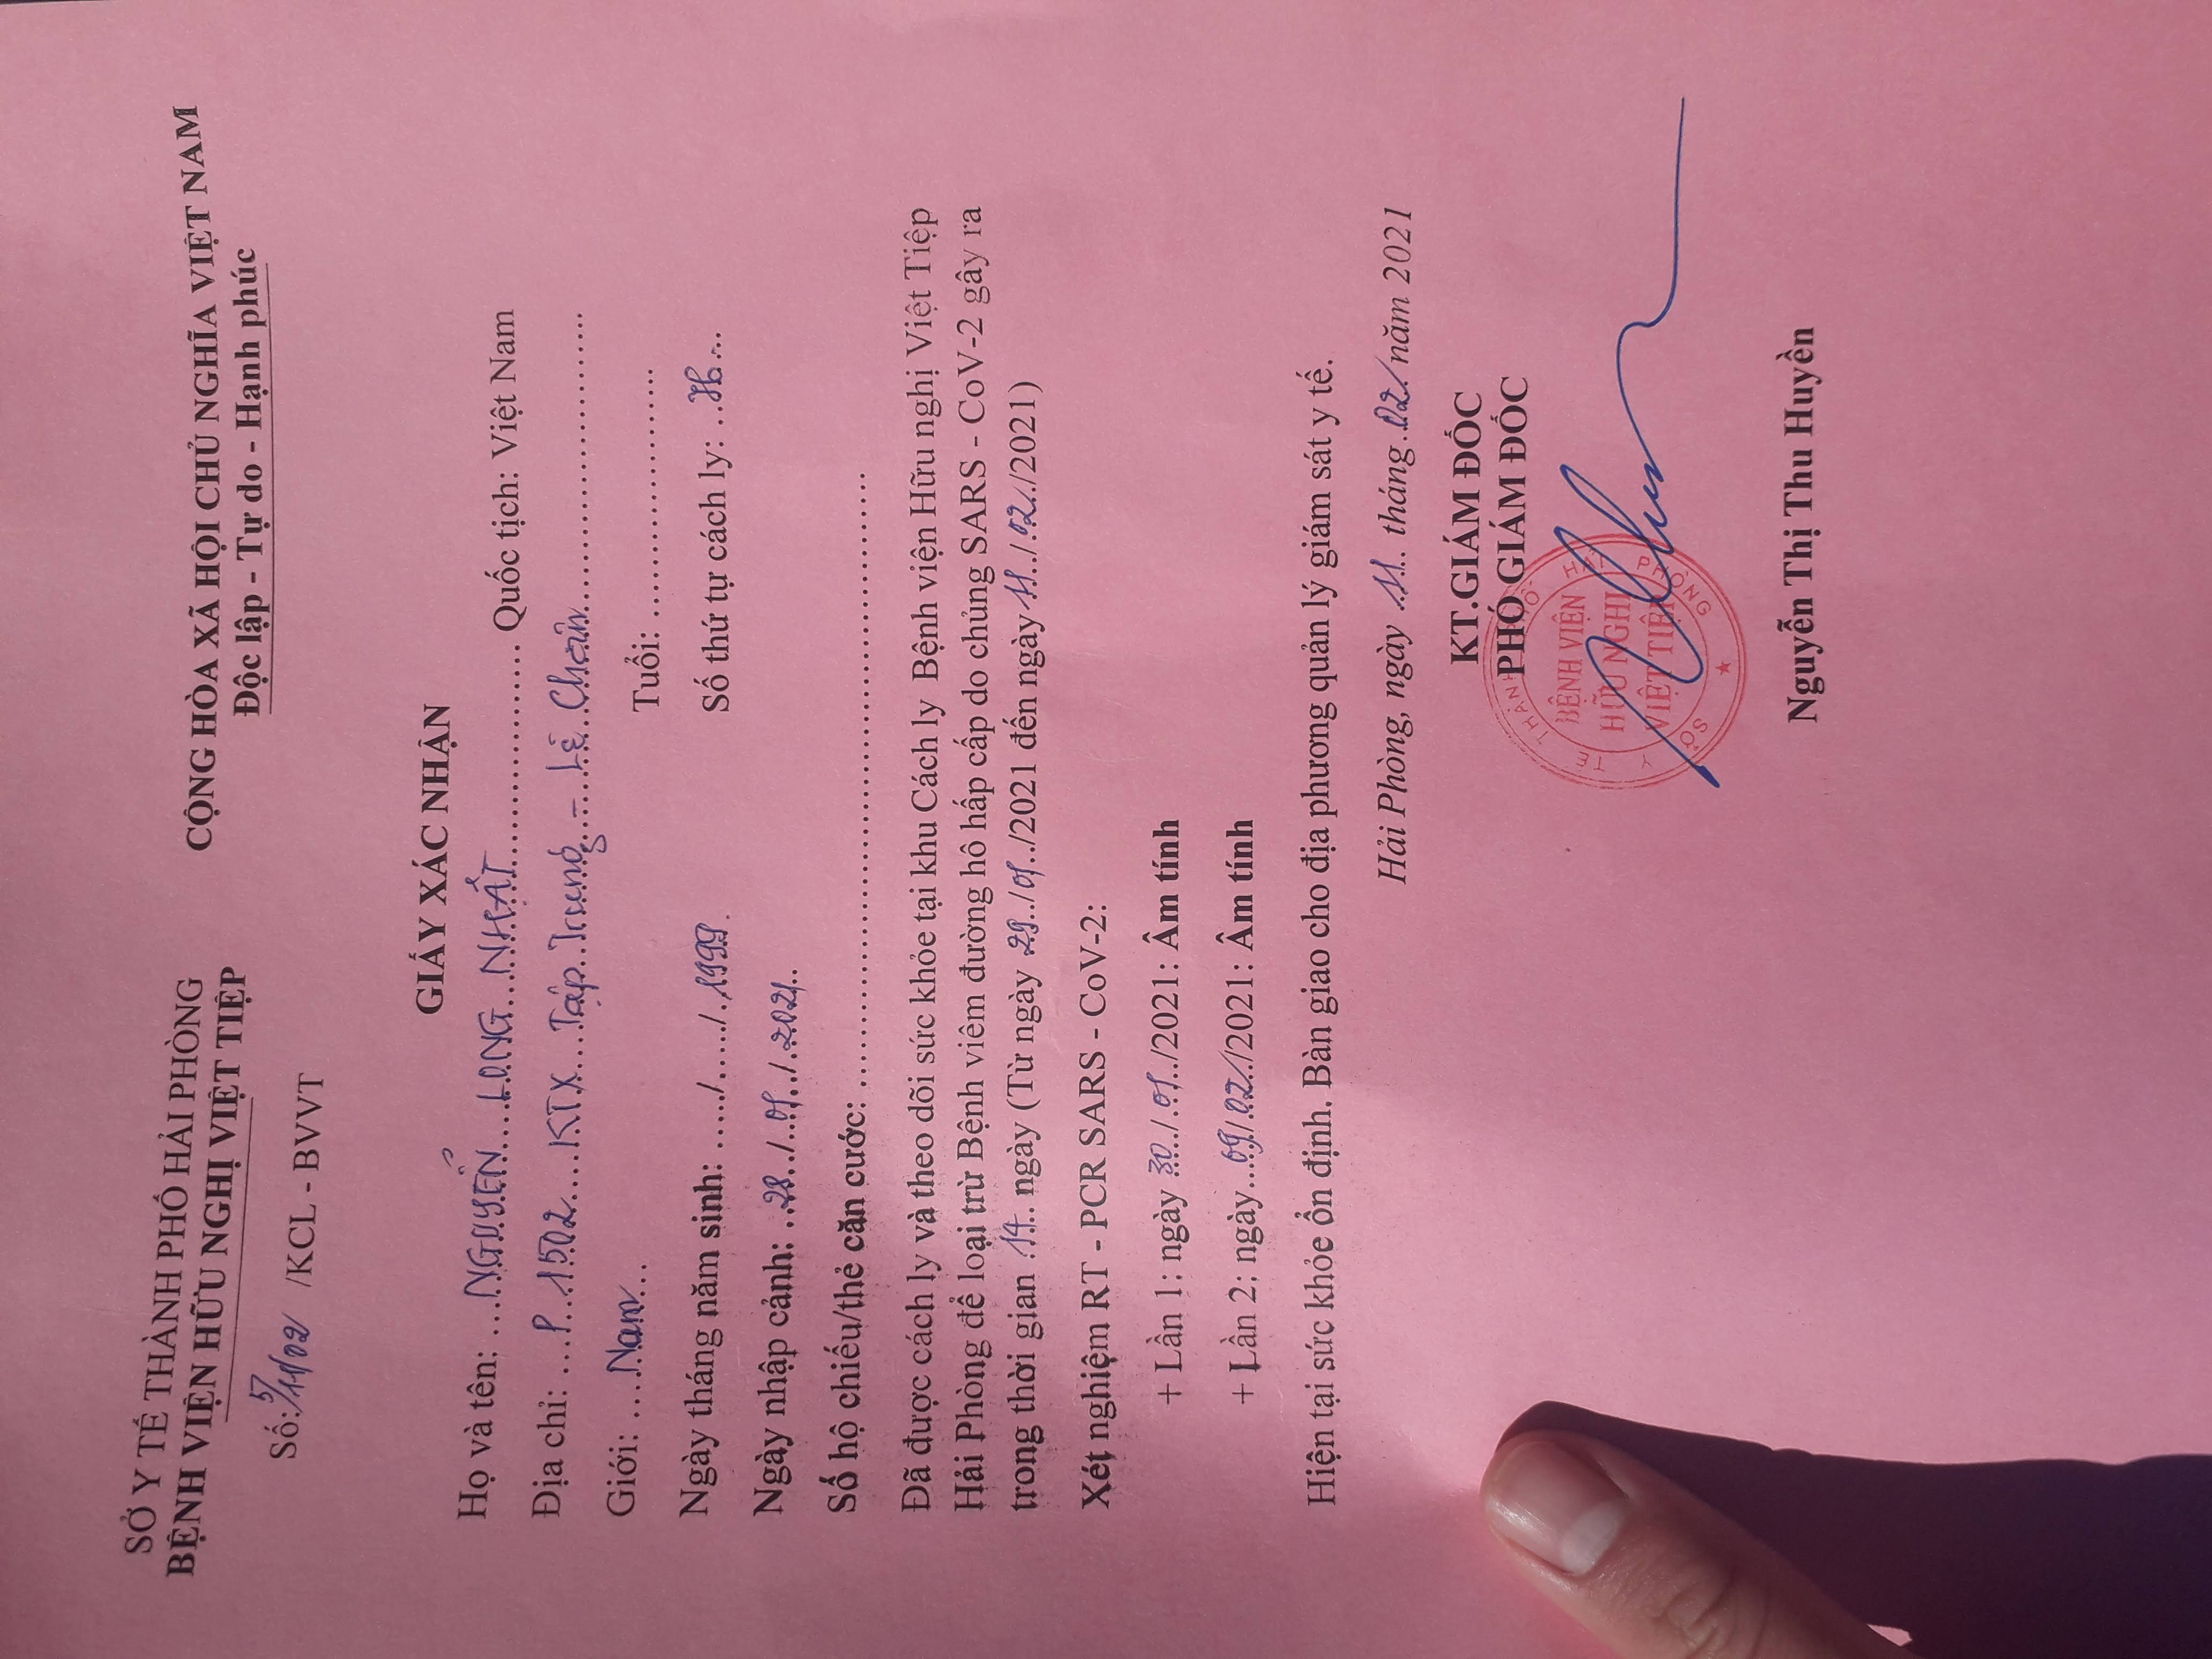 SỞ Y TẾ THÀNH PHỐ HẢI PHÒNG
BỆNH VIỆN HỮU NGHỊ VIỆT TIỆP
Số: 5/11/02 /KCL - BVVT
CỘNG HÒA XÃ HỘI CHỦ NGHĨA VIỆT NAM
Độc lập - Tự do - Hạnh phúc
GIẤY XÁC NHẬN
Họ và tên: ...NGUYỂN LONG NHẤT... Quốc tịch: Việt Nam
Địa chỉ: ...P. 1502 KTX Tập Trung - Lê Chân...
Giới: ...Nam...
Tuổi: .....................
Ngày tháng năm sinh: ...../...../.1999.
Số thứ tự cách ly:
Ngày nhập cảnh: ..28../..01../.2021..
Số hộ chiếu/thẻ căn cước: ..................................................
Đã được cách ly và theo dõi sức khỏe tại khu Cách ly Bệnh viện Hữu nghị Việt Tiệp
Hải Phòng để loại trừ Bệnh viêm đường hô hấp cấp do chủng SARS - CoV-2 gây ra
trong thời gian .14.. ngày (Từ ngày 29../01../2021 đến ngày 11../.02../2021)
Xét nghiệm RT - PCR SARS - CoV-2:
+ Lần 1: ngày 30../.01../2021: Âm tính
+ Lần 2: ngày...09/.02../2021: Âm tính
Hiện tại sức khỏe ổn định. Bàn giao cho địa phương quản lý giám sát y tế.
Hải Phòng, ngày .11.. tháng..02. năm 2021
KT.GIÁM ĐỐC
PHÓ GIÁM ĐỐC
SỞ Y TẾ THÀNH PHỐ HẢI PHÒNG
BỆNH VIỆN
HỮU NGHỊ
VIỆT TIỆP
Nguyễn Thị Thu Huyền